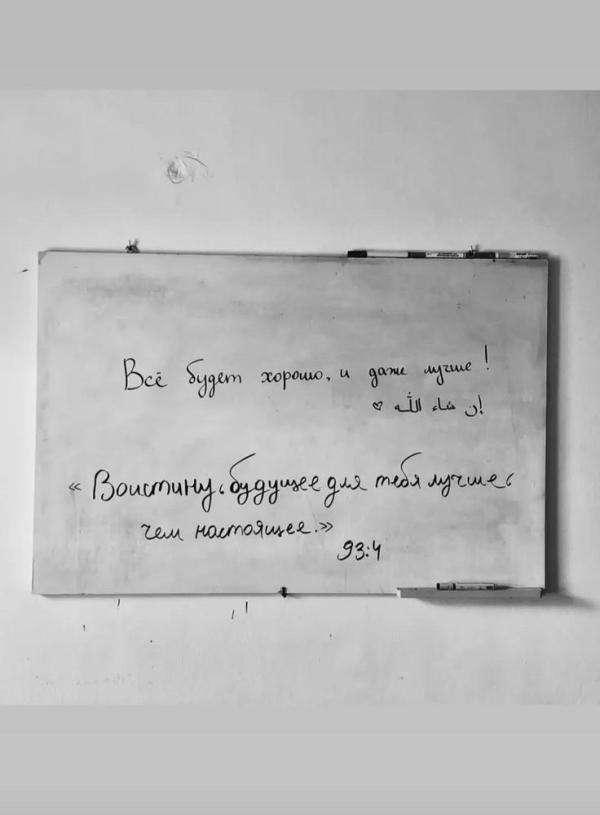 Всё будет хорошо, и даже лучше!
إن شاء الله ♡
« Воистину, будущее для тебя лучше,
чем настоящее.»
93:4